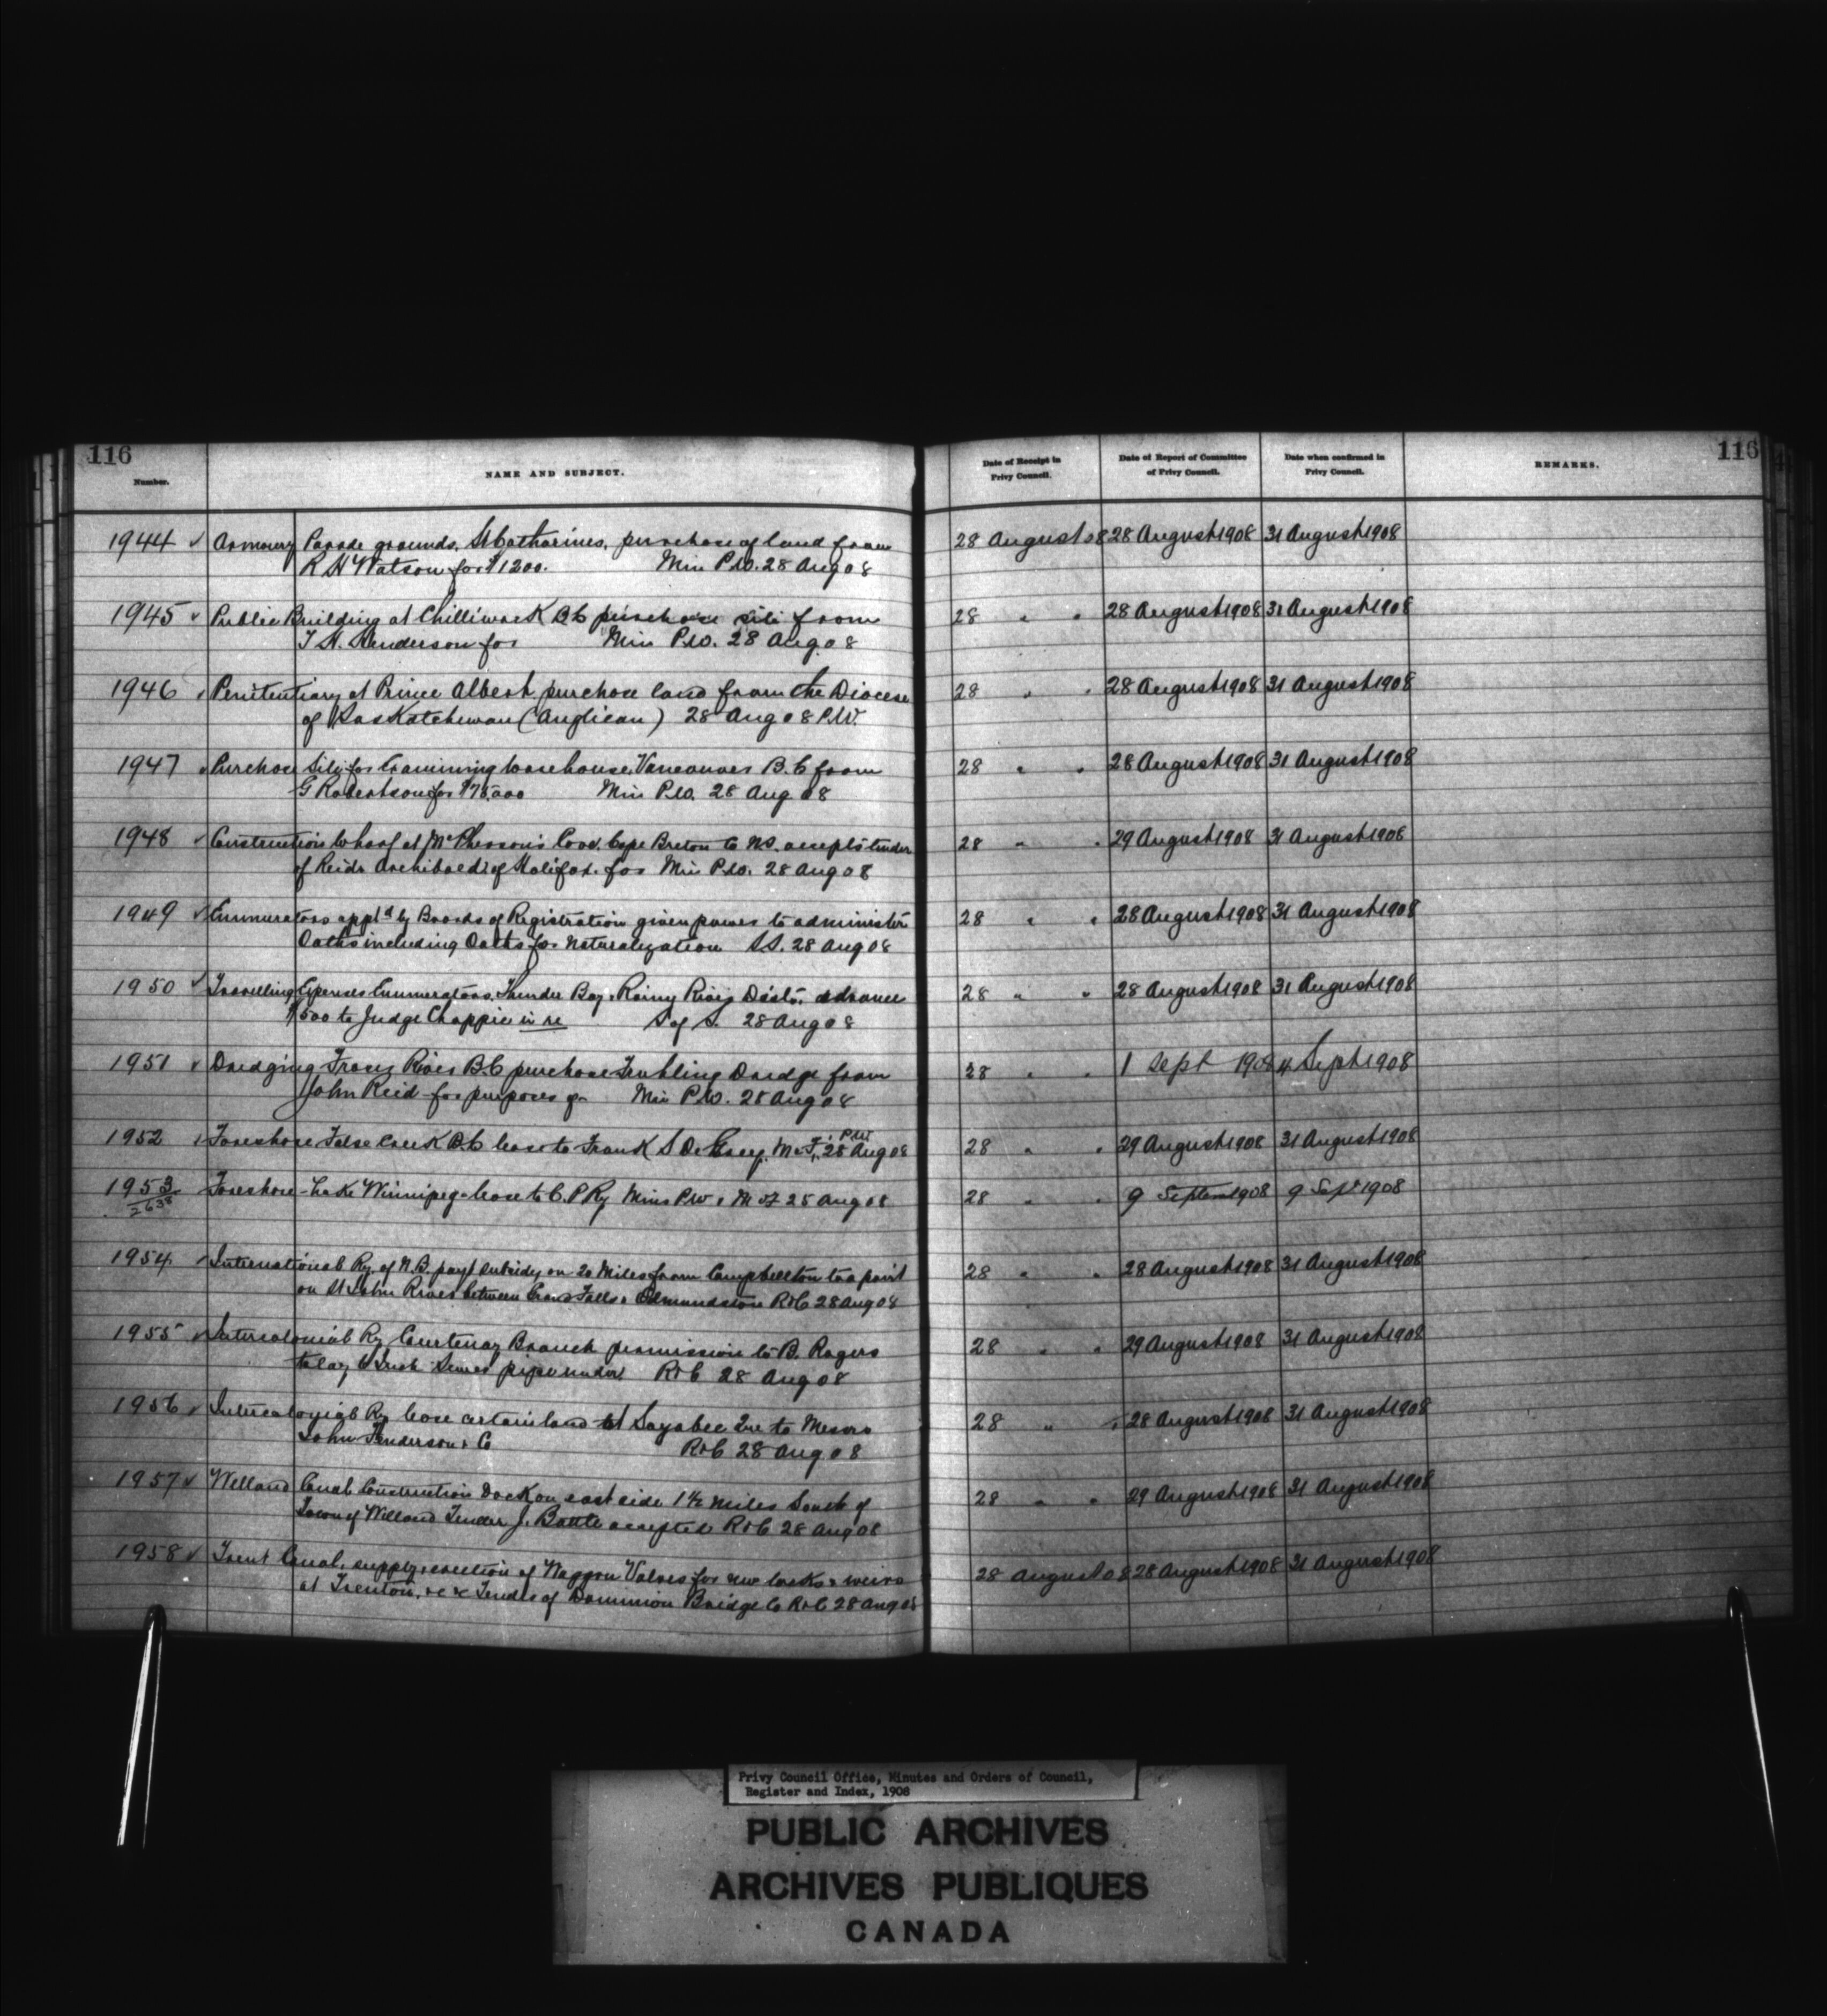 116
116
Number.
NAME AND SUBJECT.
Date of Receipt in Privy Council.
Date of Report of Committee of Privy Council.
Date when confirmed in Privy Council.
REMARKS.
1944 ✓ Armoury Parade grounds, St Catharines, purchase of land from 28 August 08 28 August 1908 31 August 1908
R H Watson for $1200. Min P.W. 28 Aug 08
1945 ✓ Public Building at Chilliwack B C purchase site from 28 " " 28 August 1908 31 August 1908
J H. Henderson for Min P.W. 28 Aug. 08
1946 Penitentiary at Prince Albert purchase land from the Diocese 28 " " 28 August 1908 31 August 1908
of Saskatchewan (Anglican) 28 Aug 08 P.W.
1947 Purchase Site for Examining warehouse Vancouver B.C from 28 " " 28 August 1908 31 August 1908
G Robertson for $75,000 Min P.W. 28 Aug 08
1948 ✓ Construction wharf at McPherson's Cove, Cape Breton Co N.S. accepts tender 28 " " 29 August 1908 31 August 1908
of Reid & Archibald of Halifax for Min P.W. 28 Aug 08
1949 ✓ Enumerators appt'd by Boards of Registration given power to administer 28 " " 28 August 1908 31 August 1908
Oaths including Oaths for Naturalization S.S. 28 Aug 08
1950 ✓ Travelling Expenses Enumerators, Thunder Bay & Rainy River Dists. advance 28 " " 28 August 1908 31 August 1908
$500 to Judge Chapple in re S of S. 28 Aug 08
1951 ✓ Dredging Fraser River B.C purchase Fruhling Dredge from 28 " " 1 Sept 1908 4 Sept 1908
John Reid for purposes of Min P.W. 28 Aug 08
1952 Foreshore False Creek B.C lease to Frank S De Grey. M & F, & P W 28 Aug 08 28 " " 29 August 1908 31 August 1908
1953 Foreshore - Lake Winnipeg - lease to C.P Ry Mins P W & M & F 25 Aug 08 28 " " 9 Septem 1908 9 Sept 1908
2638
1954 International Ry. of N.B. payt subsidy on 20 Miles from Campbellton to a point 28 " " 28 August 1908 31 August 1908
on St John River between Grand Falls & Edmundston R & C 28 Aug 08
1955 Intercolonial Ry Courtenay Branch permission to B. Rogers 28 " " 29 August 1908 31 August 1908
to lay 6 Inch Sewer pipe under R & C 28 Aug 08
1956 Intercolonial Ry lease certain land at Sayabec Que to Messrs 28 " " 28 August 1908 31 August 1908
John Fenderson & Co R & C 28 Aug 08
1957 ✓ Welland Canal Construction Dock on east side 1½ miles South of 28 " " 29 August 1908 31 August 1908
Town of Welland Tender J. Battle accepted R & C 28 Aug 08
1958 ✓ Trent Canal, supply & erection of Waggon Valves for new locks & weirs 28 August 08 28 August 1908 31 August 1908
at Trenton, &c &c Tender of Dominion Bridge Co R & C 28 Aug 08
Privy Council Office, Minutes and Orders of Council,
Register and Index, 1908
PUBLIC ARCHIVES
ARCHIVES PUBLIQUES
CANADA